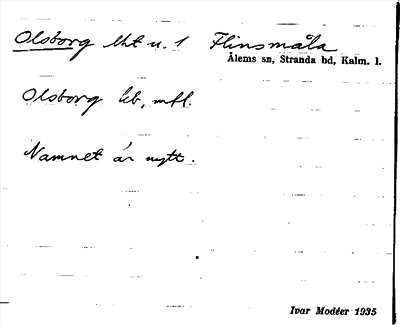 Olsborg lht u. 1 Flinsmåla
Ålems sn, Stranda hd, Kalm. l.
Olsborg kb, mtl.
Namnet är nytt.
Ivar Modéer 1935